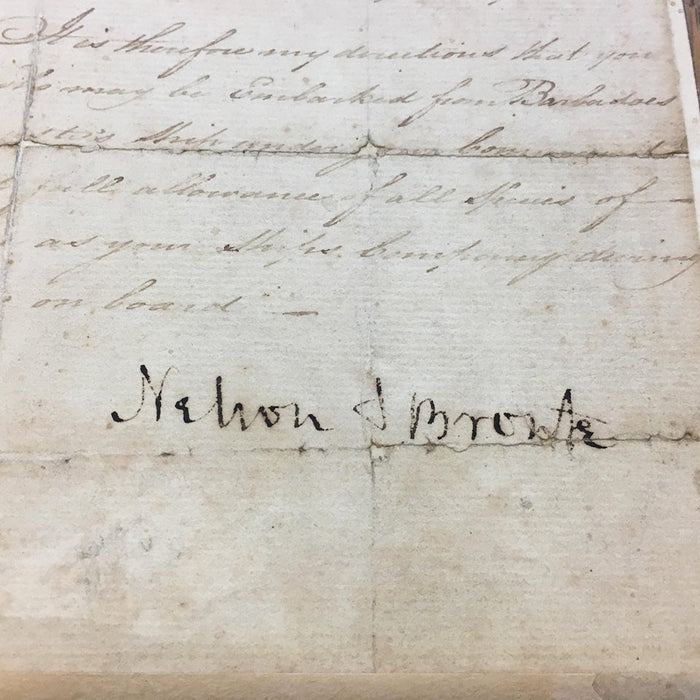 It is therefore my directions that you
may be Embarked from Barbadoes
Ship under your command
full allowance of all Species of —
as your Ships Company during
on board —
Nelson & Bronte